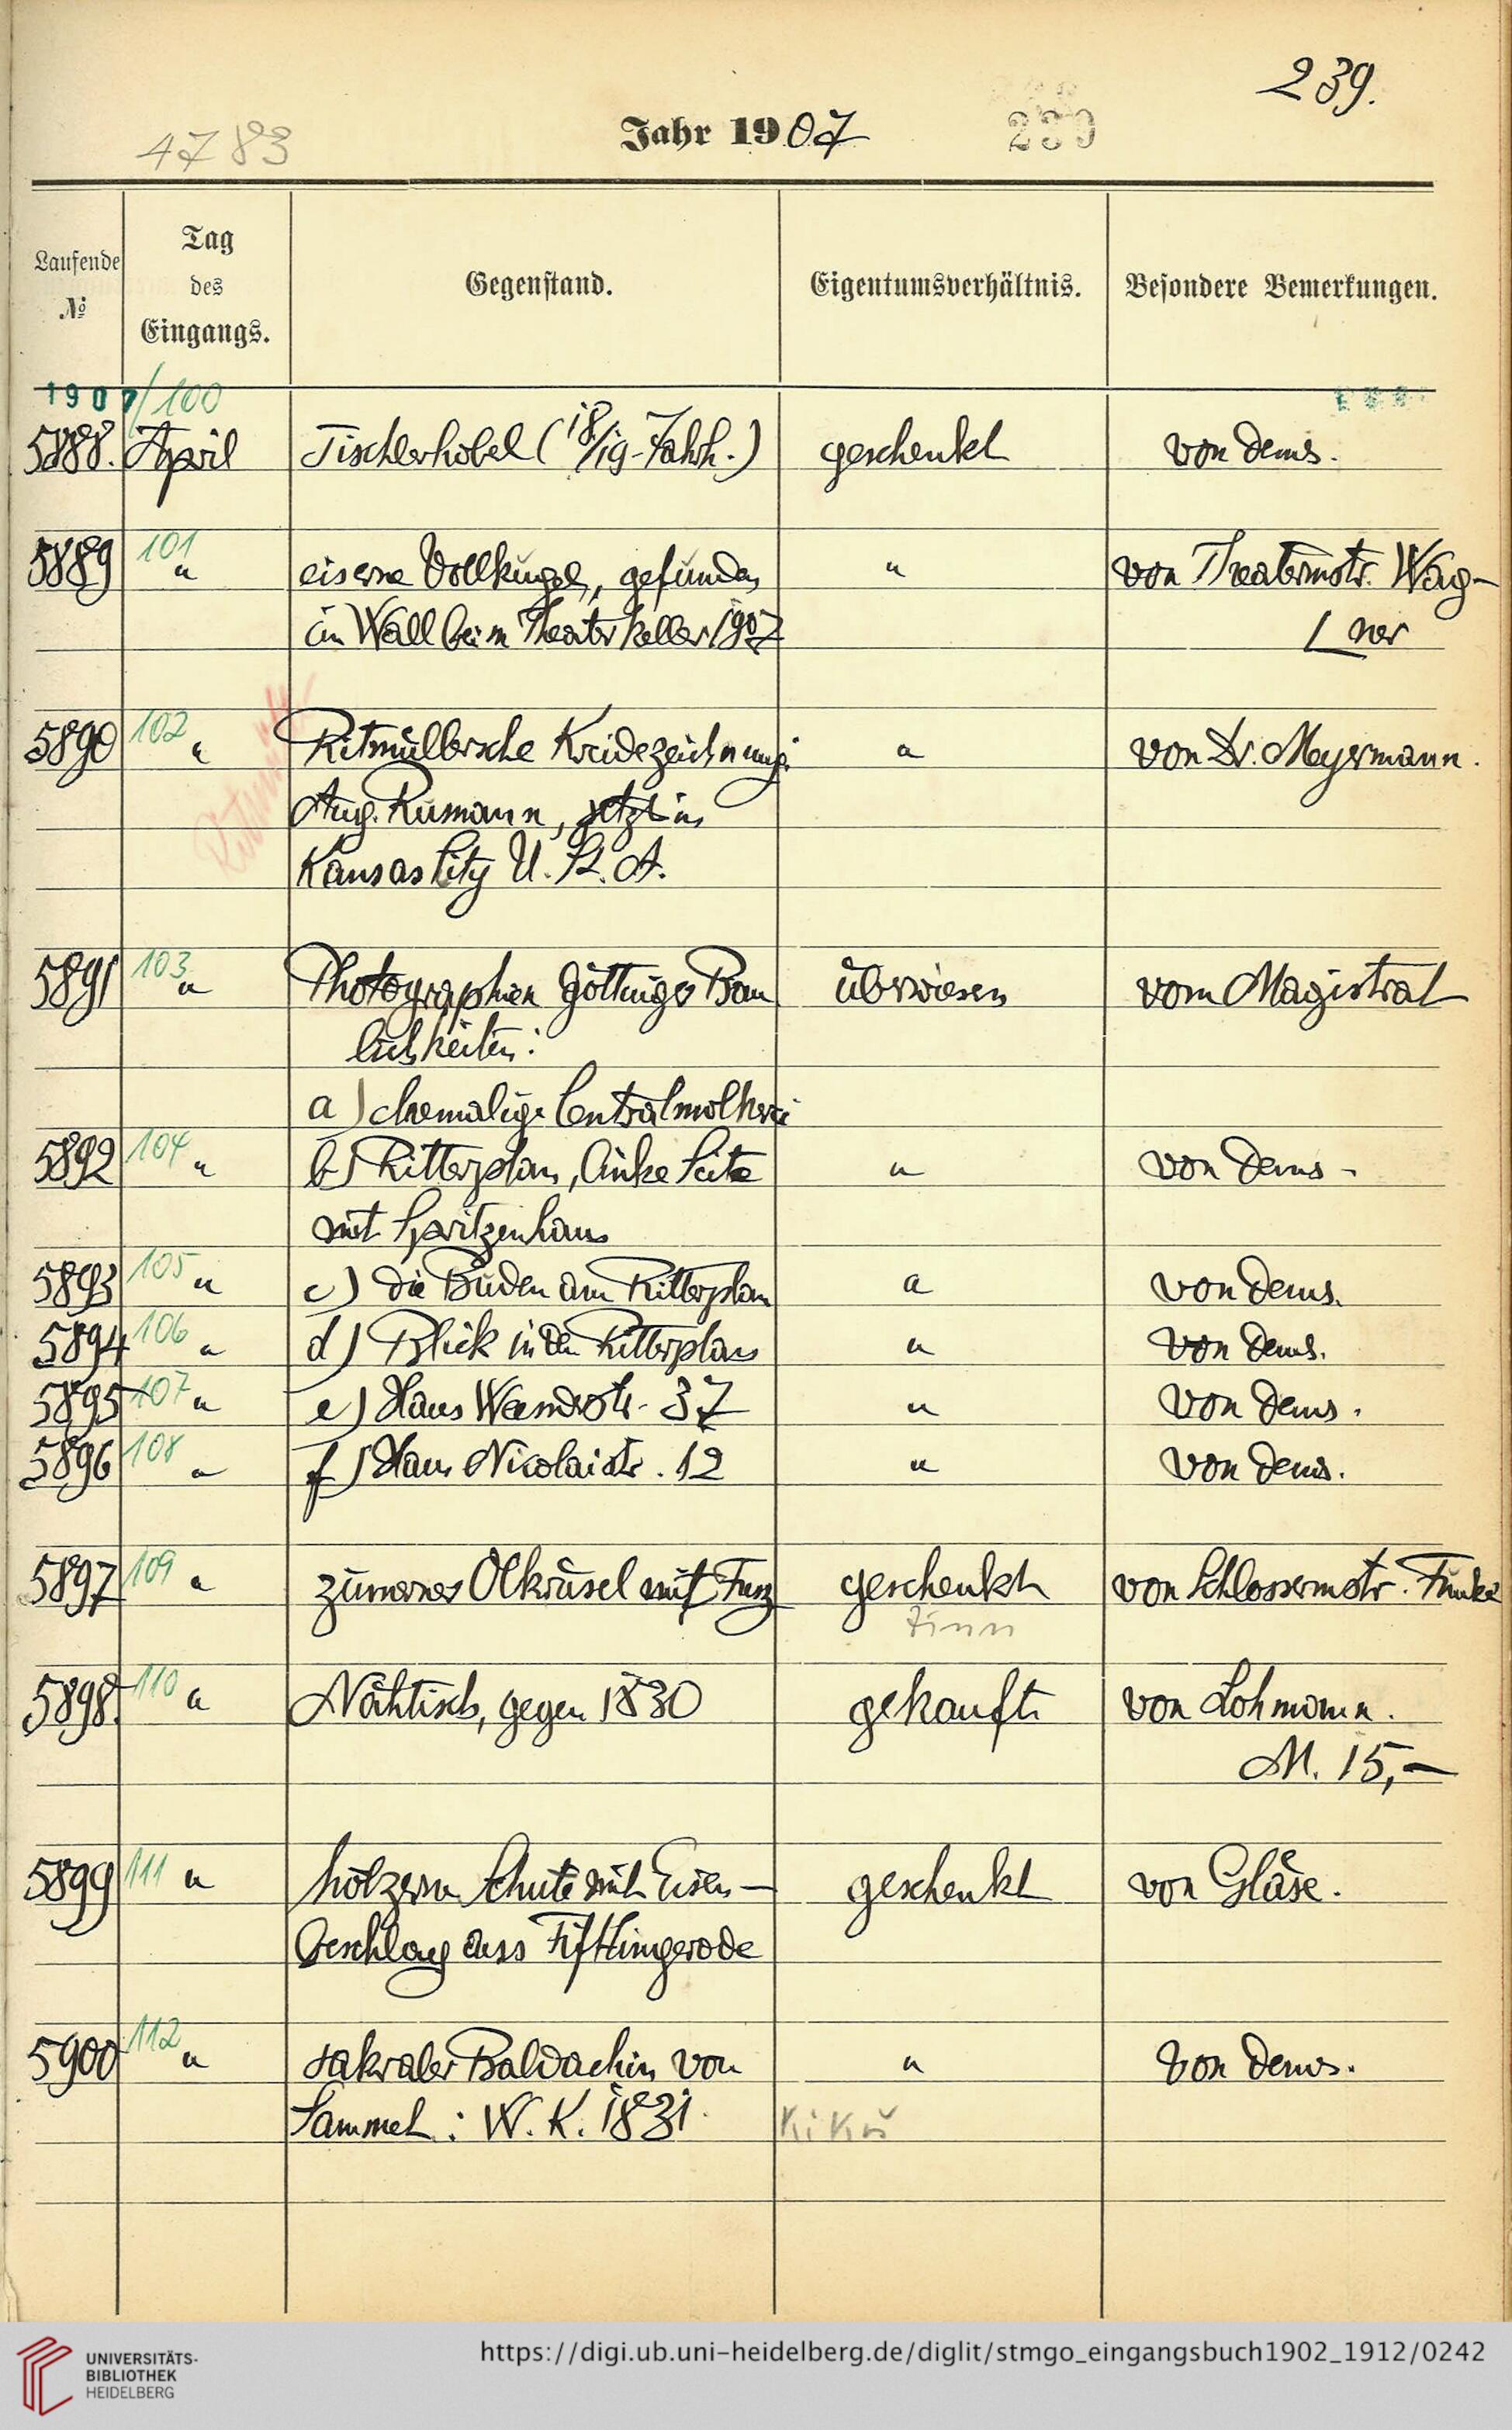 239.
4783
Jahr 1907
239
Laufende
№
Tag
des
Eingangs.
Gegenstand.
Eigentumsverhältnis.
Besondere Bemerkungen.
1907/100
5888. April Tischlerhobel (18/19. Jahrh.) geschenkt von dems.
5889 101 " eiserne Vollkugel, gefunden " von Theatermstr. Wag-
im Wall beim Theaterkeller 1907 ner
5890 102 " Ritmüllersche Kreidezeichnung: " von Dr. Meyermann.
Aug. Rumann, jetzt in
Kansas City U. St. A.
5891 103 " Photographien Göttinger Bau überwiesen vom Magistrat
lichkeiten:
a) ehemalige Centralmolkerei
5892 104 " b) Ritterplan, linke Seite " von dems.
mit Spritzenhaus
5893 105 " c) die Buden am Ritterplan " von dems.
5894 106 " d) Blick in den Ritterplan " von dems.
5895 107 " e) Haus Weenderstr. 37 " von dems.
5896 108 " f) Haus Nicolaistr. 12 " von dems.
5897 109 " zinnernes Ölkrüsel mit Fuss geschenkt von Schlossermstr. Funke
Zinn
5898. 110 " Nähtisch, gegen 1830 gekauft von Lohmann.
M. 15,-
5899 111 " hölzerne Schute mit Eisen- geschenkt von Gläse.
beschlag aus
5900 112 " sakraler Baldachin von " von dems.
Sammet: W. K. 1831. KiKu
UNIVERSITÄTS-
BIBLIOTHEK
HEIDELBERG
https://digi.ub.uni-heidelberg.de/diglit/stmgo_eingangsbuch1902_1912/0242